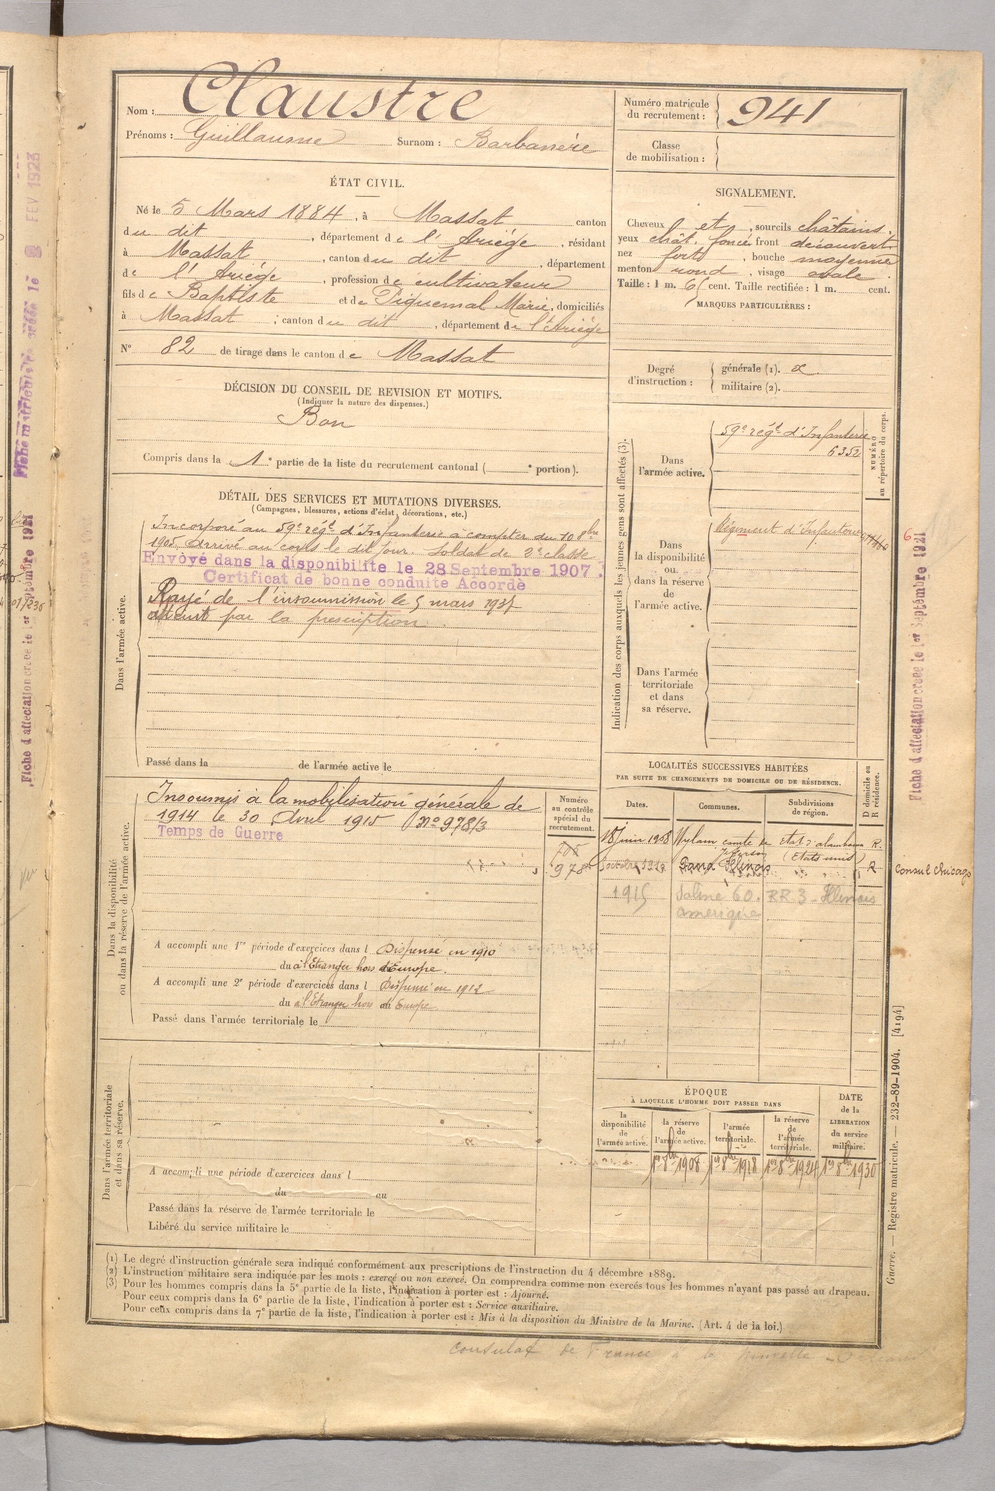 Nom : Claustre
Prénoms : Guillaume Surnom : Barbanère
Numéro matricule du recrutement : 941
Classe de mobilisation :
ÉTAT CIVIL.
Né le 5 Mars 1884, à Massat canton
du dit, département de l'Ariège, résidant
à Massat, canton du dit, département
de l'Ariège, profession de cultivateur
fils de Baptiste et de Piquemal Marie, domiciliés
à Massat, canton du dit, département de l'Ariège
N° 82 de tirage dans le canton de Massat
SIGNALEMENT.
Cheveux et, sourcils châtains.
yeux chât. foncé front découvert
nez fort, bouche moyenne
menton rond, visage ovale.
Taille : 1 m. 65 cent. Taille rectifiée : 1 m. cent.
MARQUES PARTICULIÈRES :
Degré d'instruction : générale (1). 2
militaire (2).
DÉCISION DU CONSEIL DE REVISION ET MOTIFS.
(Indiquer la nature des dispenses.)
Bon
Compris dans la 1e partie de la liste du recrutement cantonal ( e portion).
DÉTAIL DES SERVICES ET MUTATIONS DIVERSES.
(Campagnes, blessures, actions d'éclat, décorations, etc.)
Dans l'armée active.
Incorporé au 59e régt d'Infanterie à compter du 10 8bre
1905. Arrivé au corps le dit jour. Soldat de 2e classe
Envoyé dans la disponibilité le 28 Septembre 1907.
Certificat de bonne conduite Accordé
Rayé de l'insoumission le 5 mars 1937
atteint par la prescription.
Passé dans la de l'armée active le
Indication des corps auxquels les jeunes gens sont affectés (3).
Dans l'armée active.
59e régt d'Infanterie
6352
NUMÉRO au répertoire du corps.
Dans la disponibilité ou dans la réserve de l'armée active.
Régiment d'Infanterie
Dans l'armée territoriale et dans sa réserve.
Dans la disponibilité ou dans la réserve de l'armée active.
Insoumis à la mobilisation générale de
1914 le 30 Avril 1915 n° 978/3
Temps de Guerre
Numéro au contrôle spécial du recrutement.
978
A accompli une 1re période d'exercices dans l Dispensé en 1910
du à l'Etranger hors d'Europe.
A accompli une 2e période d'exercices dans l Dispensé en 1912
du à l'Etranger hors d'Europe
Passé dans l'armée territoriale le
LOCALITÉS SUCCESSIVES HABITÉES
PAR SUITE DE CHANGEMENTS DE DOMICILE OU DE RÉSIDENCE.
Dates. Communes. Subdivisions de région. D domicile ou R résidence.
18 juin 1908 Wylam comté de Jefferson Etat d'alabama (Etats unis) R.
R consul chicago
1915 Saline 60. RR 3 - Illinois
amerique
Dans l'armée territoriale et dans sa réserve.
A accompli une période d'exercices dans l
du au
Passé dans la réserve de l'armée territoriale le
Libéré du service militaire le
ÉPOQUE
À LAQUELLE L'HOMME DOIT PASSER DANS
la disponibilité de l'armée active. la réserve de l'armée active. l'armée territoriale. la réserve de l'armée territoriale. DATE de la LIBÉRATION du service militaire.
1er 8bre 1908 1er 8bre 1918 1er 8bre 1924 1er 8bre 1930
(1) Le degré d'instruction générale sera indiqué conformément aux prescriptions de l'instruction du 4 décembre 1889.
(2) L'instruction militaire sera indiquée par les mots : exercé ou non exercé. On comprendra comme non exercés tous les hommes n'ayant pas passé au drapeau.
(3) Pour les hommes compris dans la 5e partie de la liste, l'indication à porter est : Ajourné.
Pour ceux compris dans la 6e partie de la liste, l'indication à porter est : Service auxiliaire.
Pour ceux compris dans la 7e partie de la liste, l'indication à porter est : Mis à la disposition du Ministre de la Marine. (Art. 4 de la loi.)
consulat de France à la nouvelle - Orléans
Guerre. — Registre matricule. — 232-89-1904. [4194]
Fiche d'affectation créée le 1er Septembre 1921
Fiche d'affectation créée le 1er Septembre 1921
FEV 1923